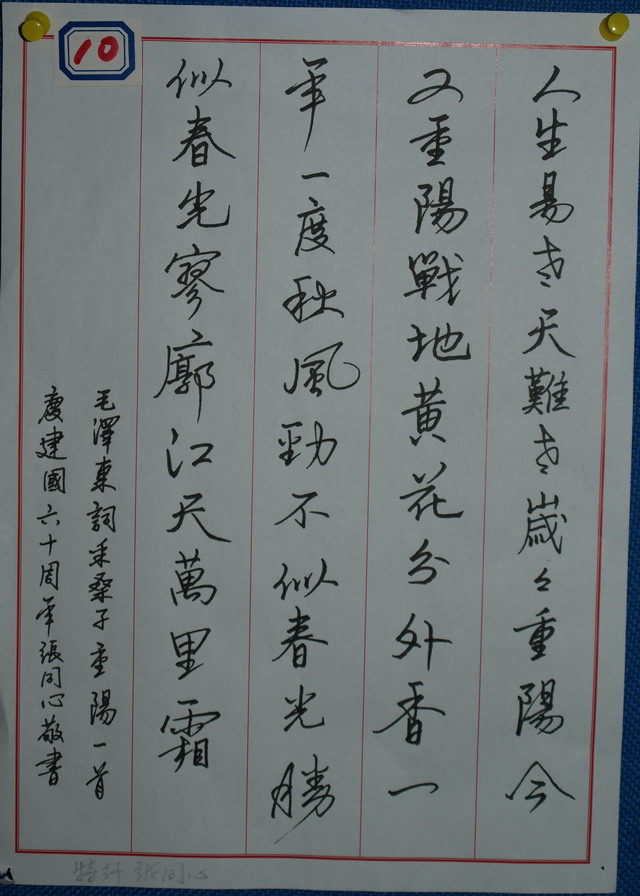 10
人生易老天難老歲々重陽今
又重陽戰地黃花分外香一
年一度秋風勁不似春光勝
似春光寥廓江天萬里霜
毛澤東詞采桑子重陽一首
慶建國六十周年張同心敬書
张同心